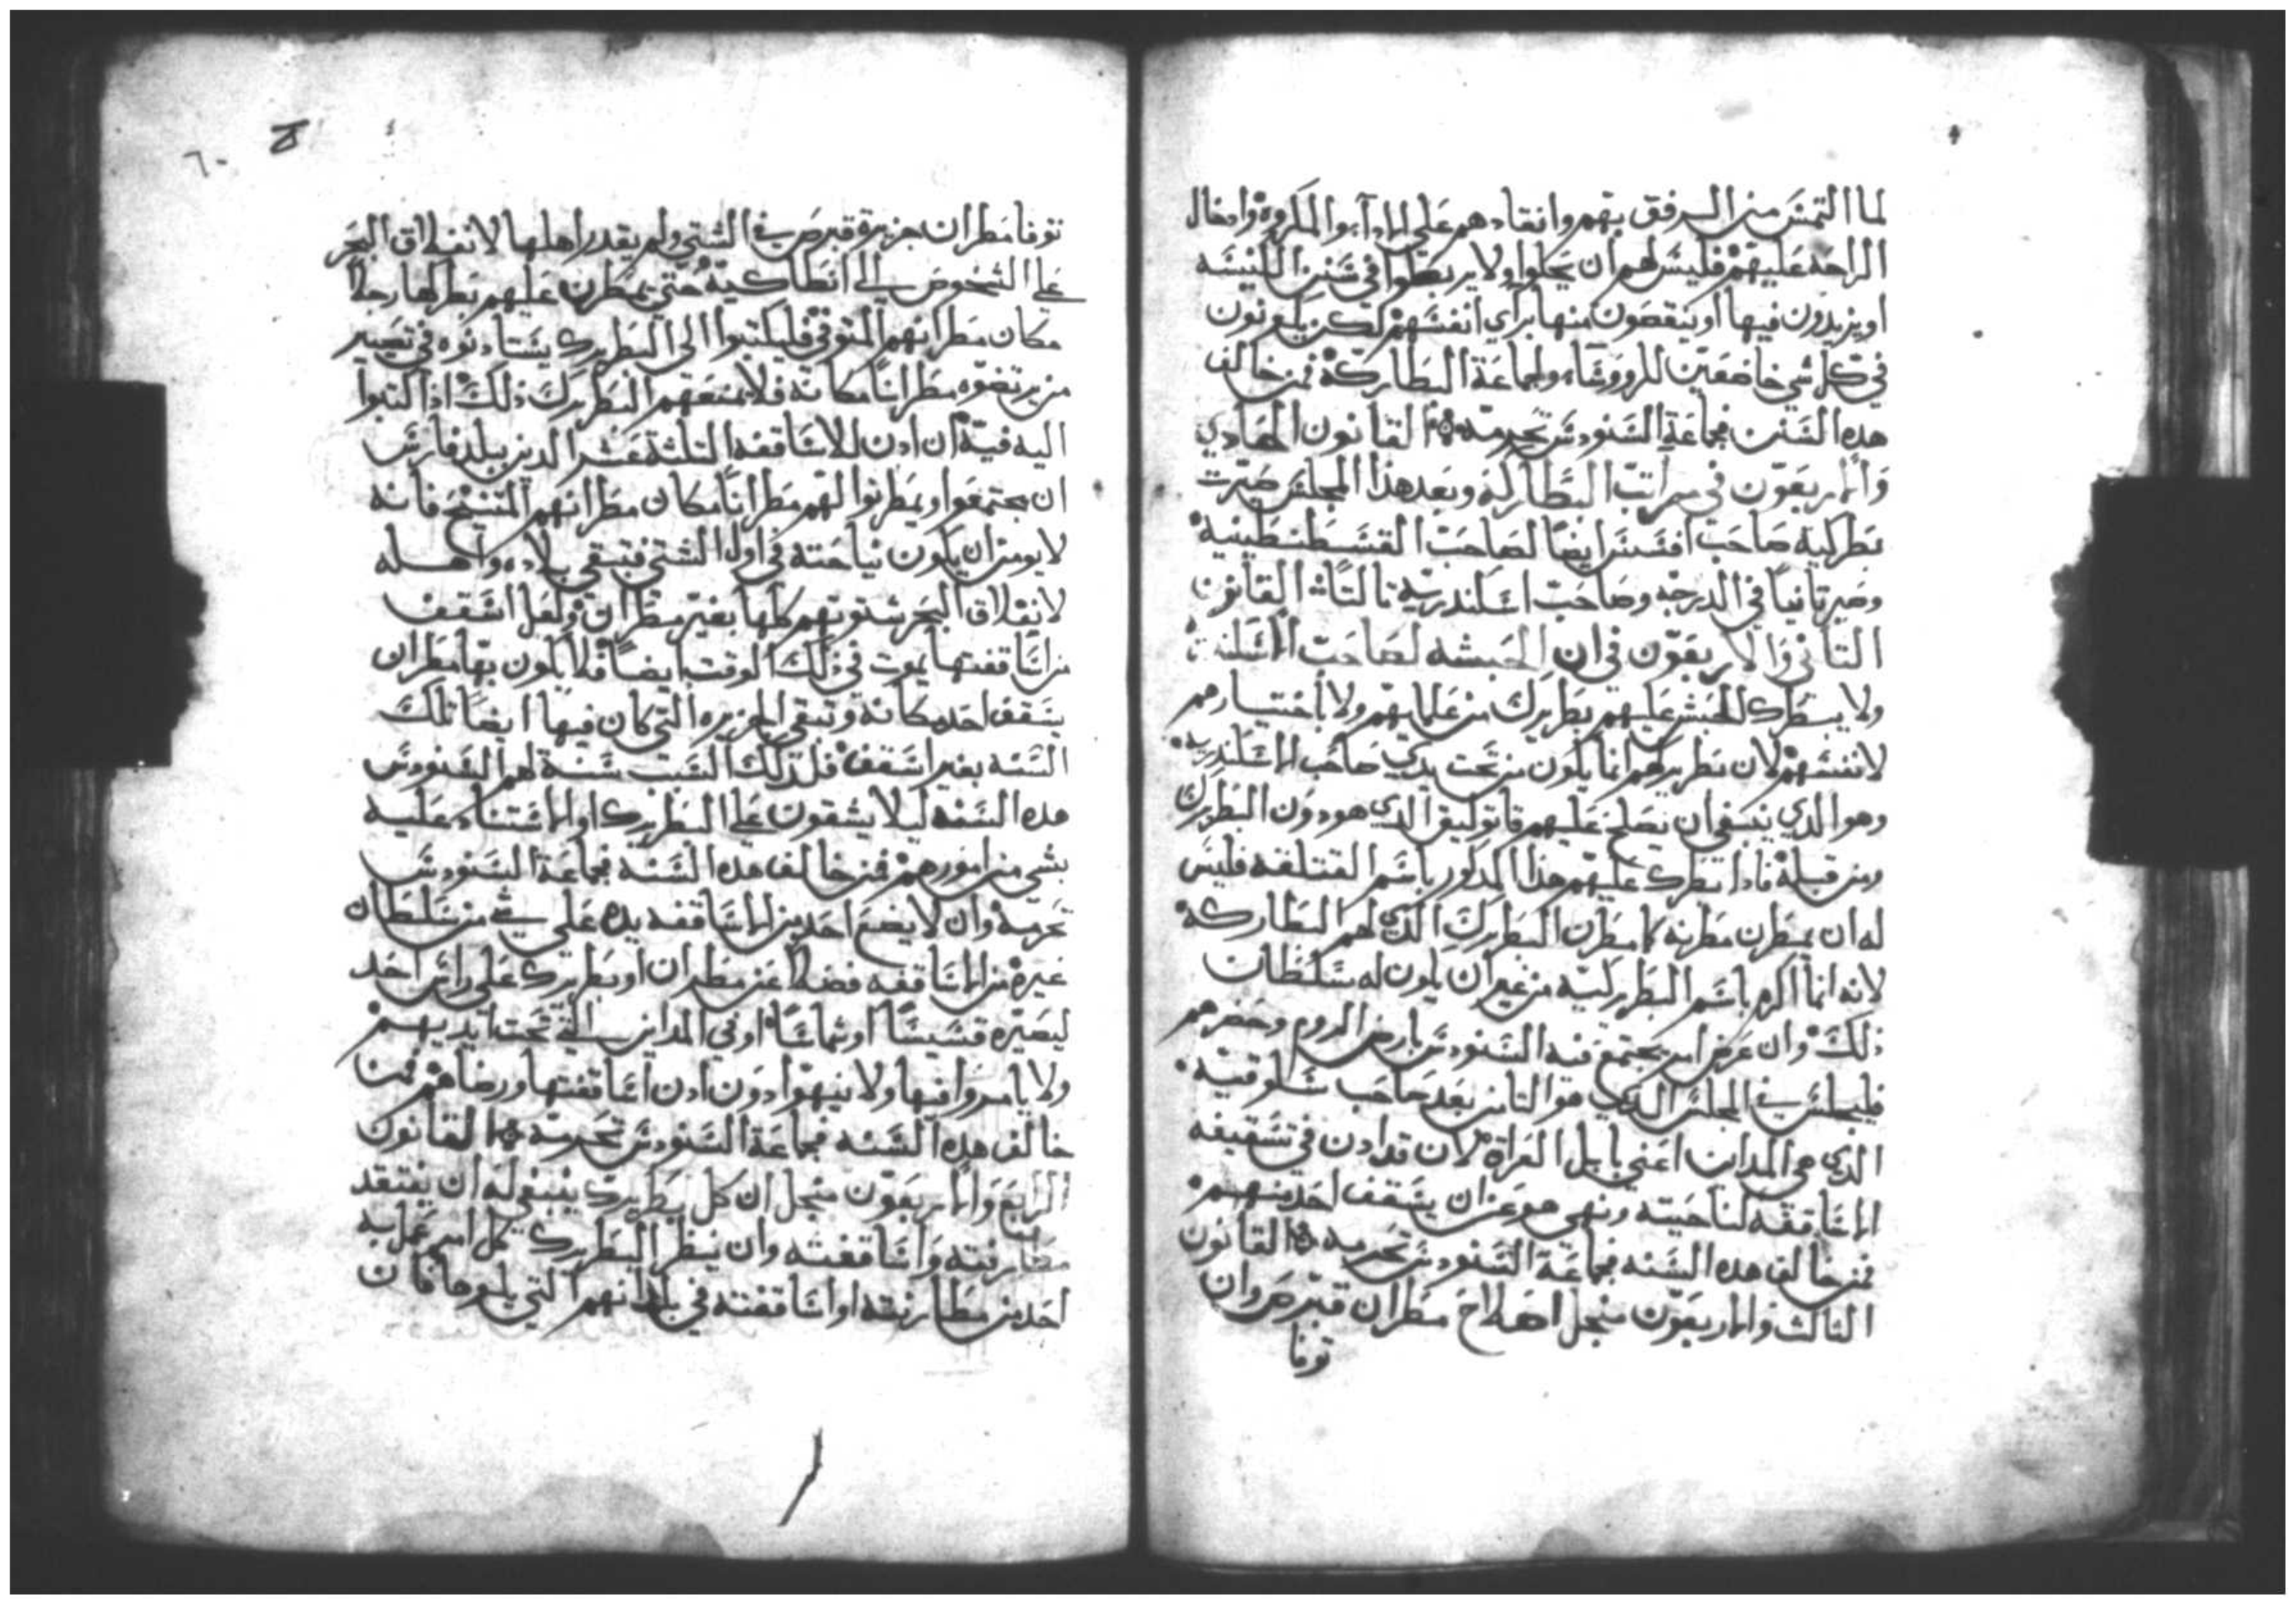 لما التمس من الرفق بهم وانقادهم على المكروه وادخال
الراحه عليهم فليس لهم ان يحلوا ولا يربطوا في سنن الكنيسه
او يزيدون فيها او ينقصون منها براي انفسهم لكن يكونون
في كل شي خاضعين للرووسا ولجماعة البطاركه فمن خالف
هده السنن فجماعة السنودس تحرمه القانون الحادي
والاربعون في مراتب البطاركه وبعد هذا المجلس صيرت
بطركيه صاحب افسس ايضا لصاحب القسطنطينيه
وصير تانيا في الدرجه وصاحب اسكندريه تالتا القانون
التاني والاربعون في ان الحبشه لصاحب
ولا يبطرك الحبش عليهم بطريرك من علمايهم ولا باختيارهم
لانفسهم لان بطريركهم انما يكون من تحت يدي صاحب الاسكندريه
وهو الدي ينبغي ان يصلح عليهم قاتوليق الدي هو دون البطريرك
ومن قبله فادا بطرك عليهم هدا المدكور باسم القتلقه فليس
له ان يمطرن مطرنه كما يمطرن البطريرك الدي لهم البطاركه
لانه انما اكرم باسم البطريركيه من غير ان يكون له سلطان
ذلك وان عرض امر يجتمع فيه السنودس بارض الروم وحضرهم
فليجلس في المجلس الدي هو التامن بعد صاحب سلوقيه
الدي هي المداين اعني بابل العراق لان قد ادن في تسقيفه
الاساقفه لناحيته ونهي هو عن ان يسقف احد منهم
فمن خالف هده السنه فجماعة السنودس تحرمه القانون
التالت والاربعون منجل اصلاح مطران قبرص وان
توفا
٦٠
توفا مطران جزيرة قبرص في الشتي ولم يقدر اهلها لانغلاق البحر
على الشخوص الى انطاكيه حتي يمطرن عليهم بطركها رجلا
مكان مطرانهم المتوفي فليكتبوا الى البطريرك يستادنوه في تصيير
من يرتضوه مطرانا مكانه فلا يمنعهم البطريرك ذلك ادا كتبوا
اليه فيه ان ادن للاساقفه التلتة عشر الدين ببلد فارس
ان يجتمعوا ويمطرنوا لهم مطرانا مكان مطرانهم المتنيح فانه
لا يومن ان يكون نياحته في اول الشتي فتبقي بلاده واهله
لانغلاق البحر شتوتهم كلها بغير مطران ولعل اسقف
من اساقفتها يموت في ذلك الوقت ايضا فلا يكون بها مطران
يسقف احد مكانه وتبقي الجزيره التي كان فيها ايضا تلك
السنه بغير اسقف فلذلك السبب سنة لهم السنودس
هده السنه ليلا يشقون على البطريرك او الاستناد عليه
بشي من امورهم فمن خالف هده السنه فجماعة السنودس
تحرمه وان لا يضع احد من الاساقفه يده على شي من سلطان
غيره من الاساقفه فضلا عن مطران او بطريرك على راس احد
ليصيره قسيسا او شماسا او في المداين التي تحت ايديهم
ولا يامروا فيها ولا ينهوا دون ادن اساقفتها ورضاهم فمن
خالف هده السنه فجماعة السنودس تحرمه القانون
الرابع والاربعون منجل ان كل بطريرك ينبغي له ان يفتقد
مطارنته واساقفته وان ينظر البطريرك كل امر عمل به
احد من مطارنته او اساقفته في بلدانهم التي يلوها فان